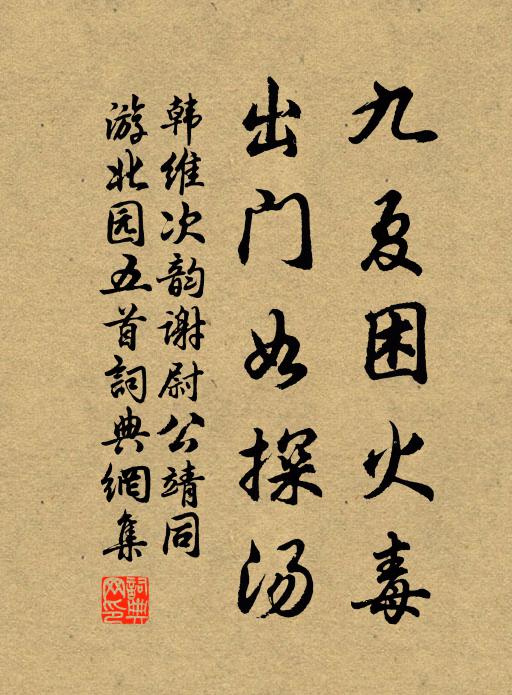 九夏困火毒
出门如探汤
韩维次韵谢尉公靖同
游北园五首詞典網集
詞典
网印